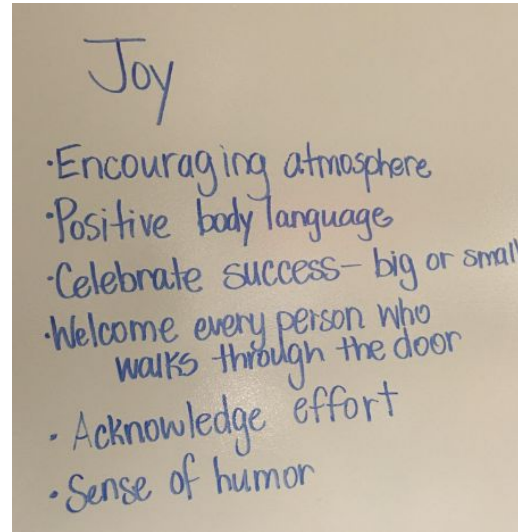 Joy
·Encouraging atmosphere
·Positive body language
·Celebrate success – big or small
·Welcome every person who
walks through the door
· Acknowledge effort
· Sense of humor